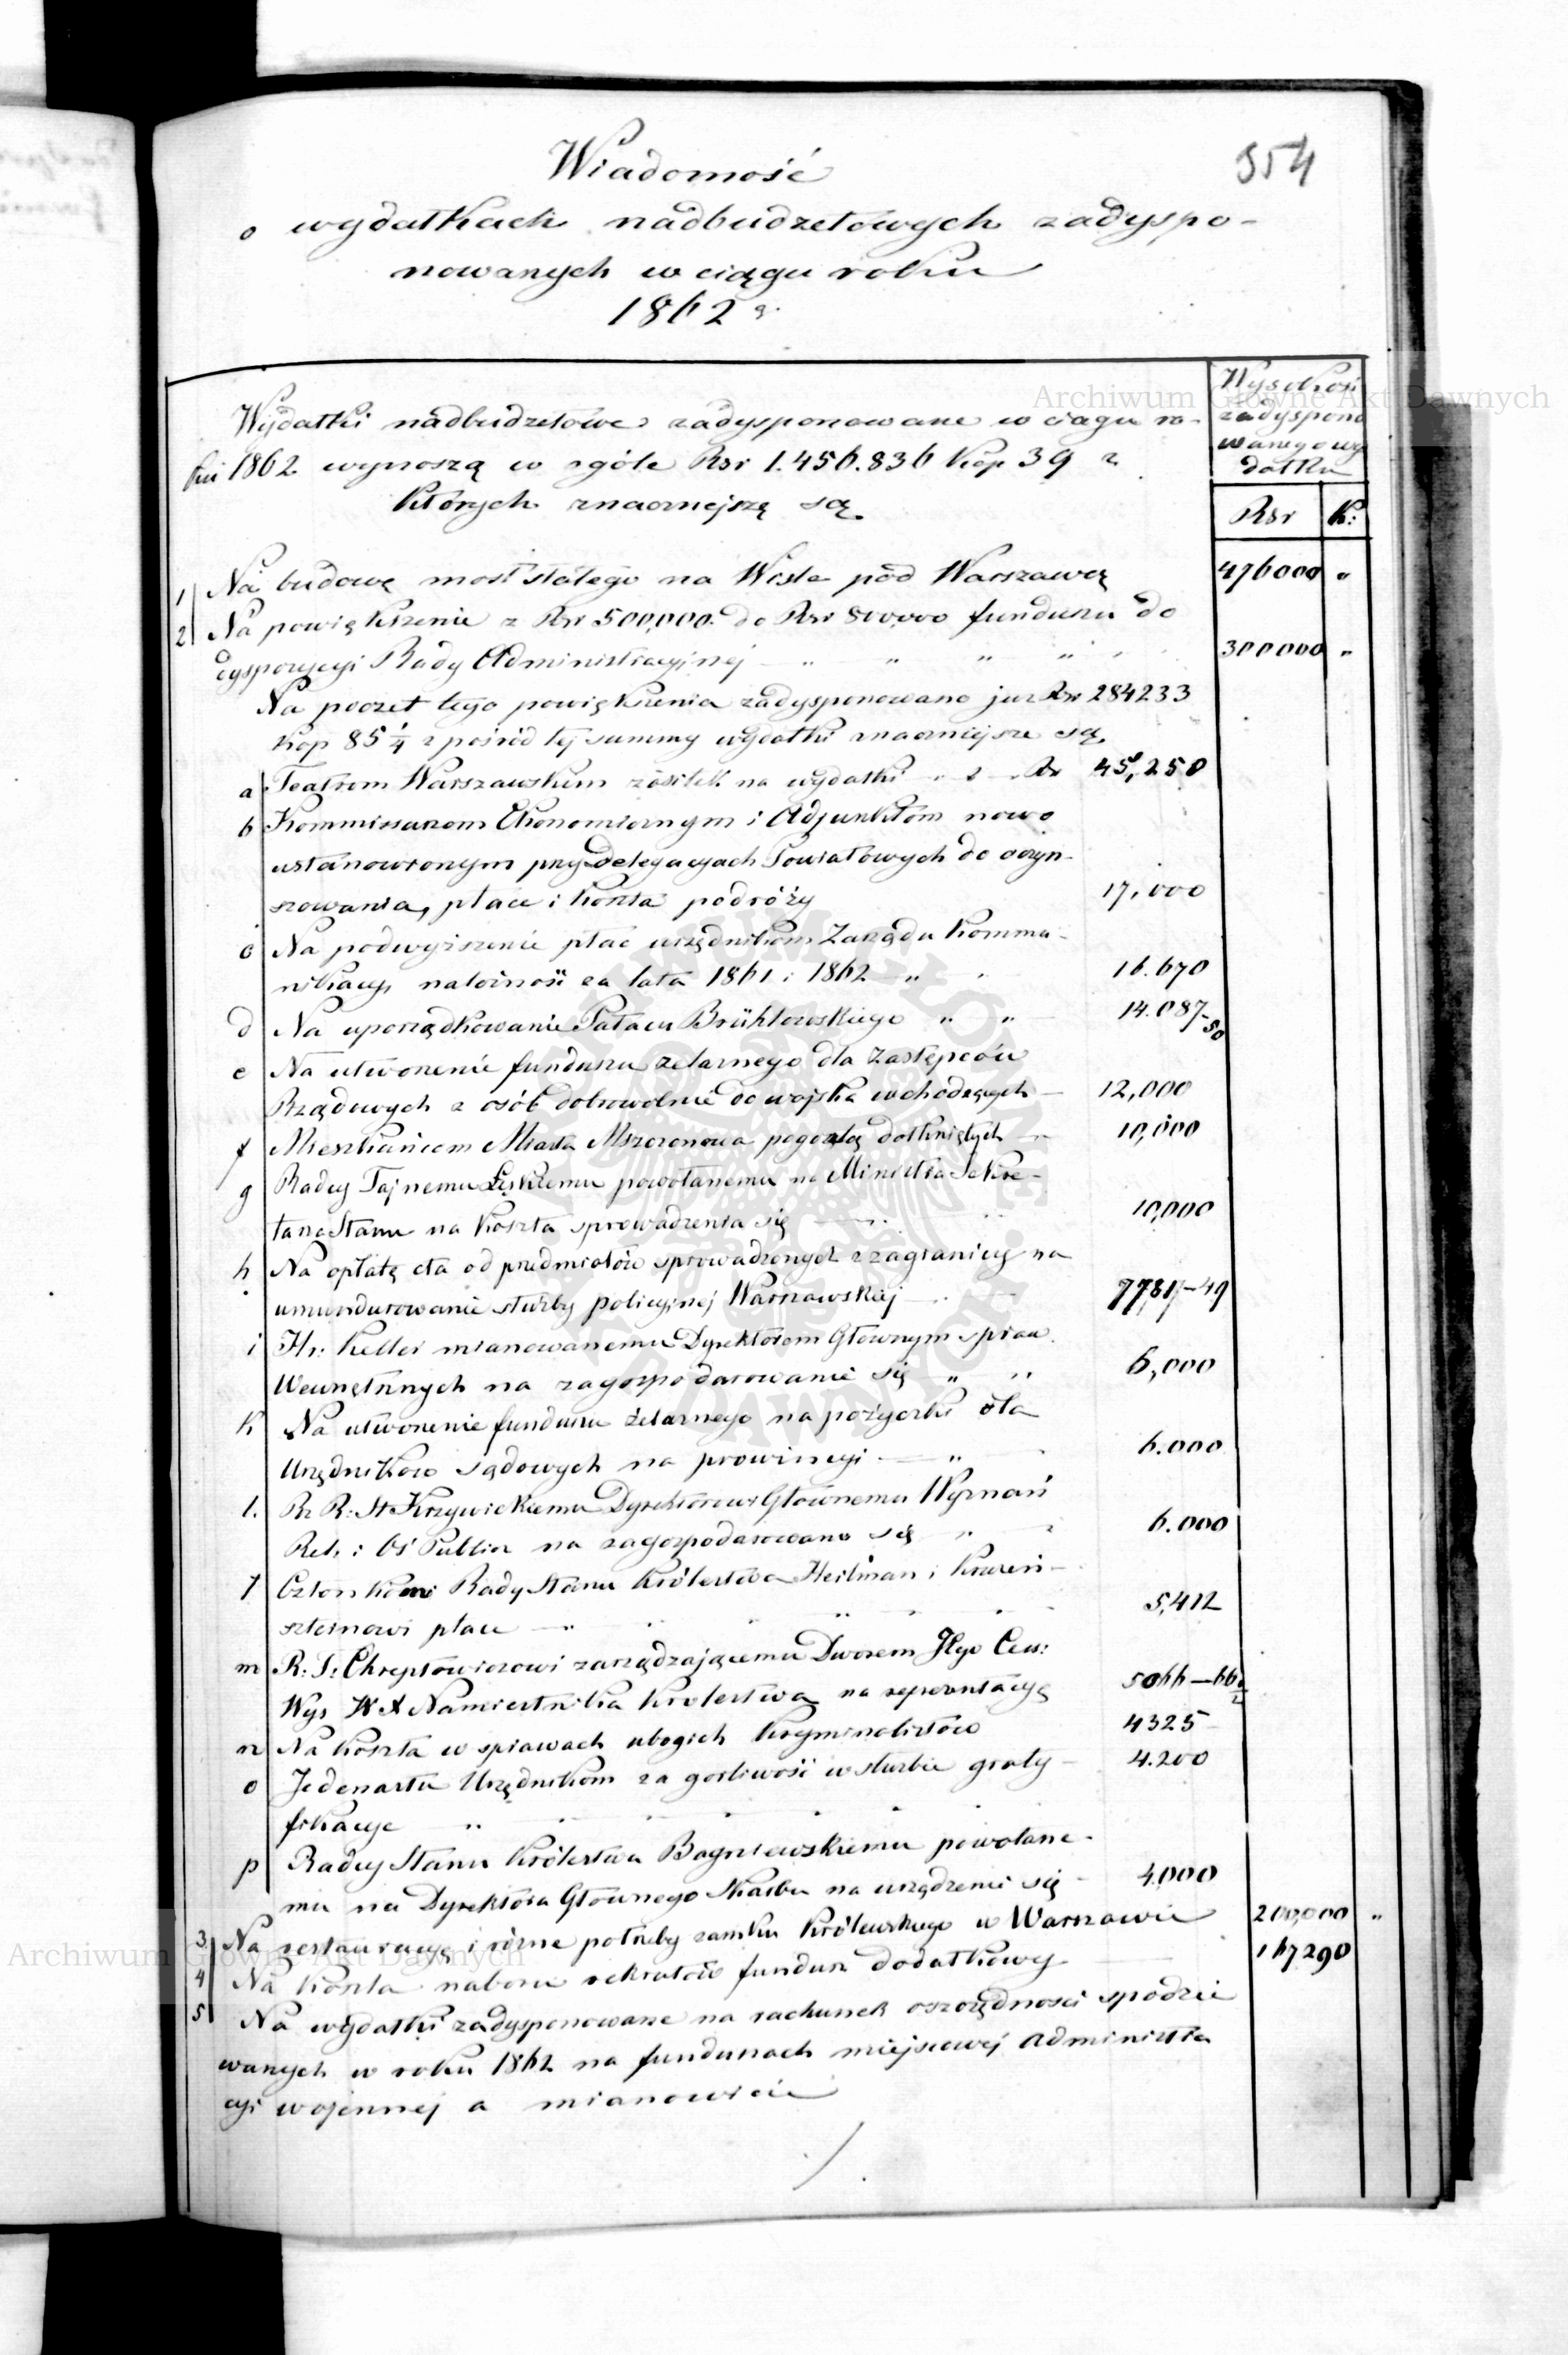 354
Wiadomość
o wydatkach nadbudzetowych zadyspo-
nowanych w ciągu roku
1862 r.
Wydatki nadbudzetowe zadysponowane w ciągu ro-
ku 1862 wynoszą w ogóle Rsr 1.456.836 Kop 39 z
których znaczniejszę są
Wysokość
zadyspono
wanego wy
datku
Rsr K:
1 Na budowę most stałego na Wisle pod Warszawą 476000 "
2 Na powiększenie z Rsr 500,000 do Rsr 800,000 funduszu do
dyspozycyi Rady Administracyjnej " " " " 300000 "
Na poczet tego powiększenia zadysponowano juz Rsr 284233
Kop 85 1/4 z pośród tej summy wydatki znaczniejsze są
a Teatrom Warszawskim zasiłek na wydatki Rsr 45,250
b Kommissarzom Ekonomicznym i Adjunktom nowo
ustanowionym przy Delegacyach Powiatowych do oczyn-
szowania, płace i koszta podróży 17,000
c Na podwyższenie płac urzędnikom Zarządu Kommu-
nikacyj należność za lata 1861 i 1862 " 16.670
d Na uporządkowanie Pałacu Brühlowskiego " " 14.087-50
e Na utworzenie funduszu żelaznego dla Zastępców
Rządowych z osób dobrowolnie do wojska wchodzących 12,000
f Mieszkańcom Miasta Mszczonowa pogorzelą dotkniętych 10,000
g Radcy Tajnemu Łęskiemu powołanemu na Ministra Sekre-
tarza Stanu na koszta sprowadzenia się 10,000
h Na opłatę cła od przedmiotów sprowadzonych z zagranicy na
umundurowanie służby policyjnej Warszawskiej 7781-49
i Hr: Keller mianowanemu Dyrektorem Głównym spraw
Wewnętrznych na zagospodarowanie się " " 6,000
k Na utworzenie funduszu żelaznego na pożyczki dla
Urzędników sądowych na prowincyi " 6.000
l. Rz R: St Krzywickiemu Dyrektorowi Głównemu Wyznań
Rel: i Oś Public na zagospodarowane się " 6.000
ł Członkom Rady Stanu Królestwa Heilman i Kruzen-
szternowi płace " 5,412
m R: S: Chreptowiczowi zarządzającemu Dworem Jego Ces:
Wys W X Namiestnika Królestwa na reprezentacyę 5066-66
n Na koszta w sprawach ubogich kryminalistów 4325
o Jedenastu Urzędnikom za gorliwość w służbie graty- 4.200
fikacye "
p Radcy Stanu Królestwa Bagniewskiemu powołane-
mu na Dyrektora Głównego Skarbu na urządzenie się 4,000
3 Na restauracyę i różne potrzeby zamku Królewskiego w Warszawie 200,000 "
4 Na koszta naboru rekrutów fundusz dodatkowy 167290
5 Na wydatki zadysponowane na rachunek oszczędności spodzie
wanych w roku 1862 na funduszach miejscowej administra
cyi wojennej a mianowicie
/.
Archiwum Główne Akt Dawnych
Archiwum Główne Akt Dawnych